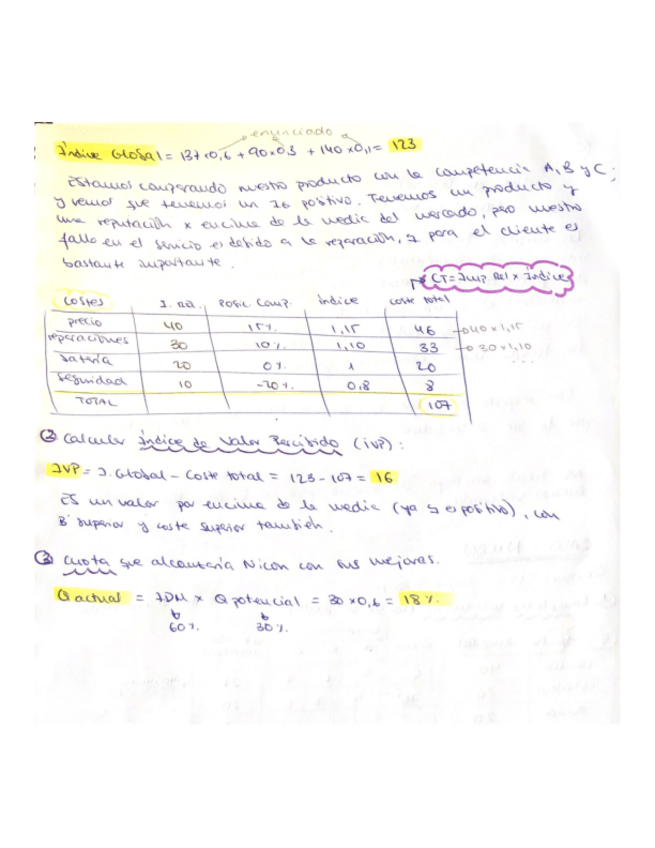 enunciado
Índice Global = 137×0,6 + 90×0,3 + 140×0,1 = 123
Estamos comparando nuestro producto con la competencia A, B y C;
y vemos que tenemos un IG positivo. Tenemos un producto y
una reputación x encima de la media del mercado, pero nuestro
fallo en el servicio es debido a la reparación, y para el cliente es
bastante importante.
CT = Imp. Rel x Índice
COSTES I. Rel. Posic. Comp. índice coste total
precio 40 15% 1,15 46 → 40 x 1,15
reparaciones 30 10% 1,10 33 → 30 x 1,10
batería 20 0% 1 20 ...
seguridad 10 -20% 0,8 8
TOTAL 107
② Calcular Índice de Valor Percibido (IVP):
IVP = I. Global - Coste total = 123 - 107 = 16
Es un valor por encima de la media (ya q es positivo), con
Bº superior y coste superior también.
③ Cuota que alcanzaría Nicon con sus mejoras.
Q actual = IDM x Q potencial = 30 x 0,6 = 18%
60% 30%